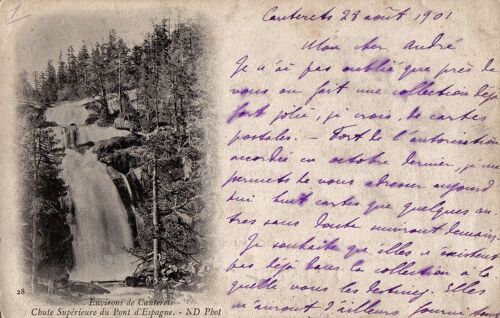 1
Cauterets 28 août 1901
Mon cher André
Je n'ai pas oublié que près de
vous on fait une collection déjà
fort jolie, je crois, de cartes
postales. - Fort de l'autorisation
accordée en octobre dernier, je me
permets de vous adresser aujourd
hui huit cartes que quelques au
tres sans doute suivront demain.
Je souhaite qu'elles n'existent
pas déjà dans la collection à la
quelle vous les destinez. Elles
n'auront d'ailleurs
28
Environs de Cauterets
Chute Supérieure du Pont d'Espagne. - ND Phot